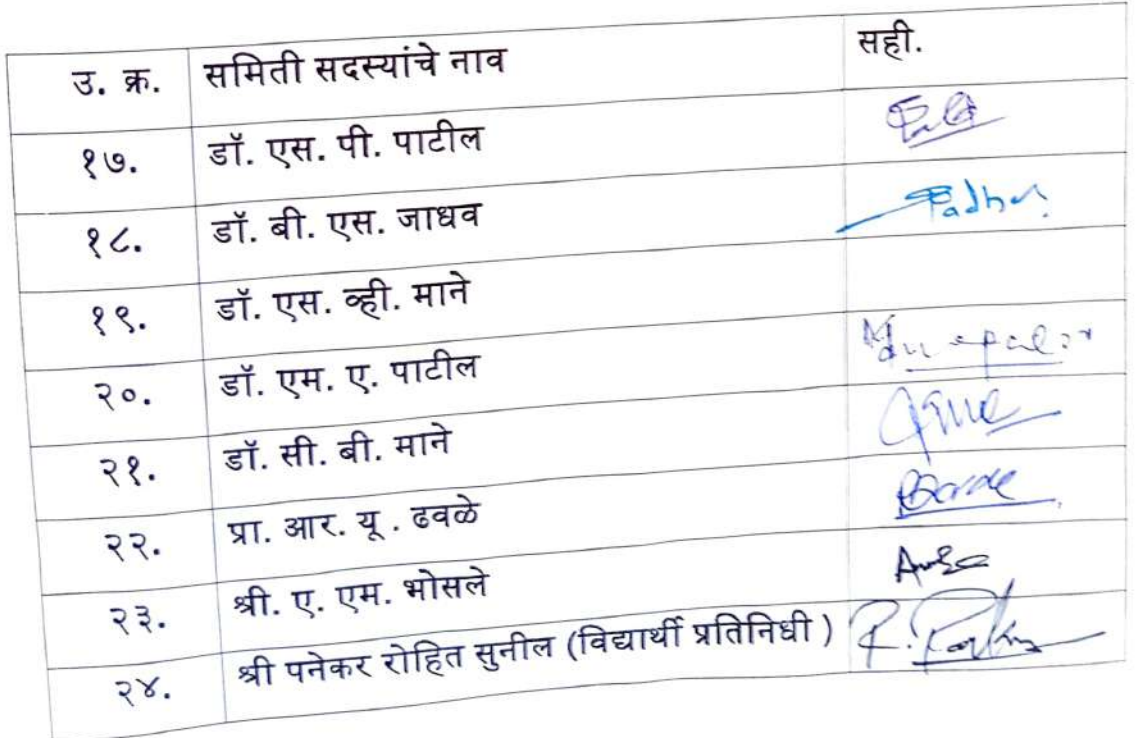 उ. क्र. समिती सदस्यांचे नाव सही.
१७. डॉ. एस. पी. पाटील
१८. डॉ. बी. एस. जाधव
१९. डॉ. एस. व्ही. माने
२०. डॉ. एम. ए. पाटील
२१. डॉ. सी. बी. माने
२२. प्रा. आर. यू . ढवळे
२३. श्री. ए. एम. भोसले
२४. श्री पनेकर रोहित सुनील (विद्यार्थी प्रतिनिधी )